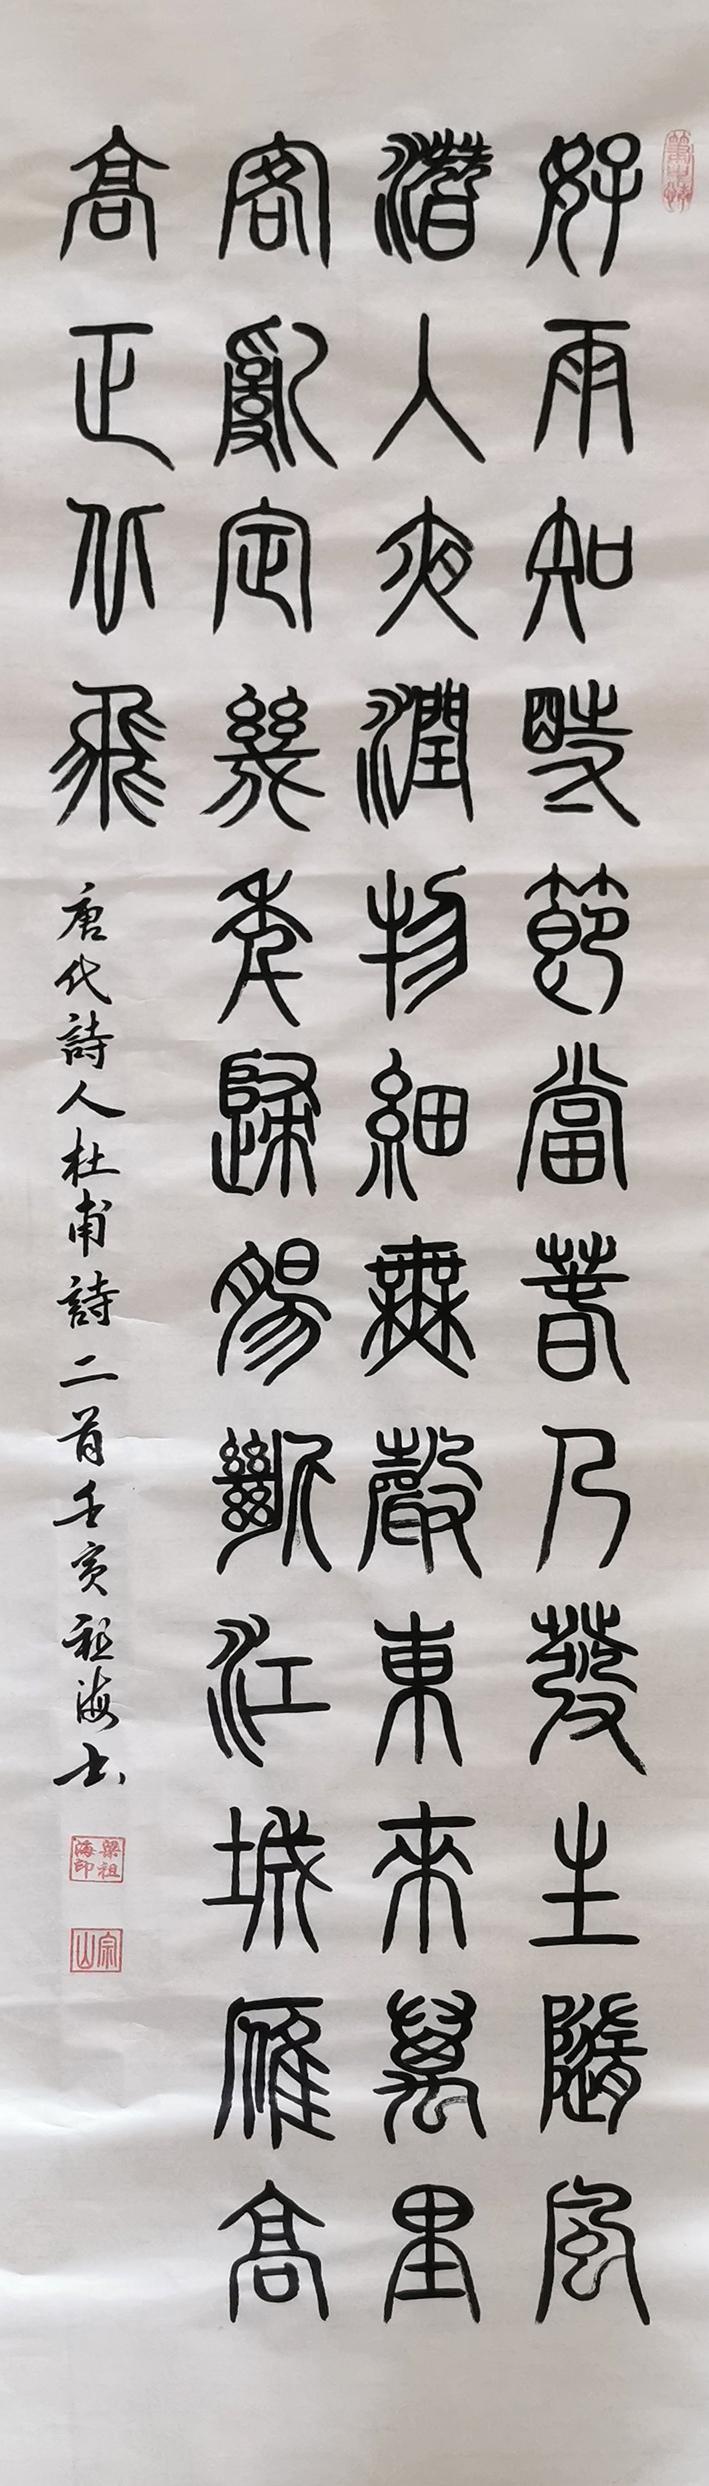 好雨知時節當春乃發生隨風
潛入夜潤物細無聲東來萬里
客亂定幾年歸腸斷江城雁高
高正北飛
唐代詩人杜甫詩二首壬寅祖海书
梁祖海印
宗山